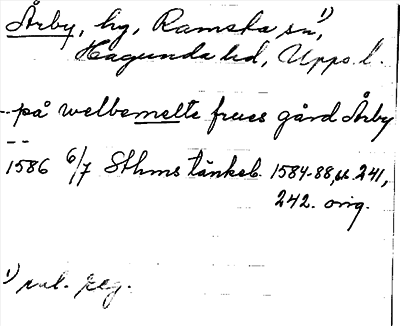 Årby, hg, Ramsta sn¹⁾,
Hagunda hd, Upps. l.
-- på welbemelte frues gård Årby
--
1586 6/7 Sthms tänkeb. 1584-88, s. 241,
242. orig.
¹⁾ enl. reg.